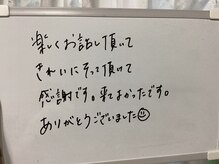 楽しくお話し頂いて
きれいにそって頂けて
感謝です。来てよかったです。
ありがとうございました